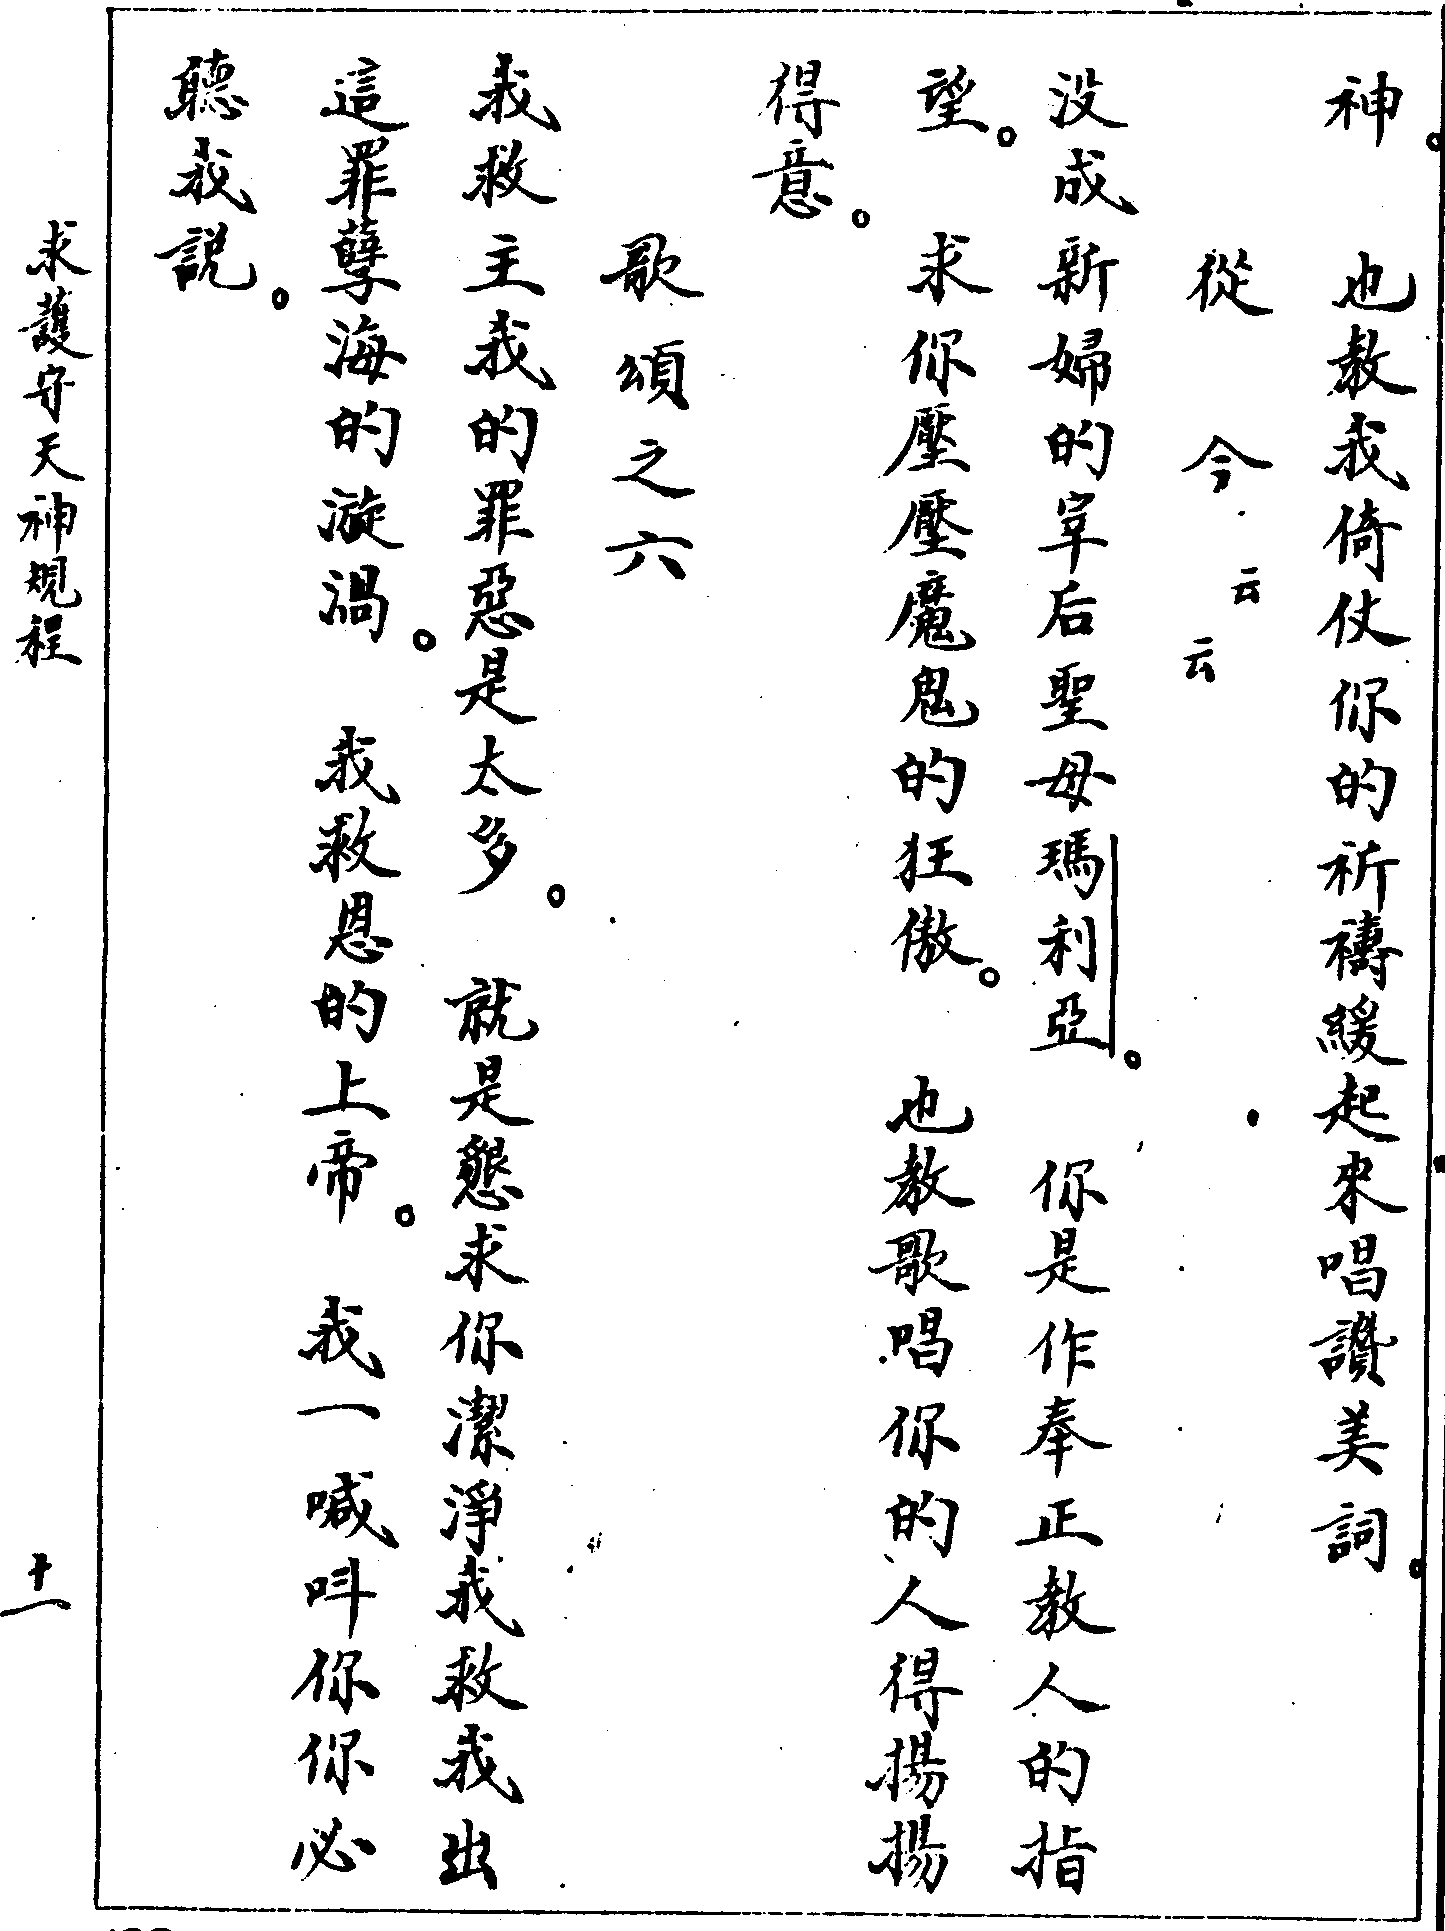 神。也教我倚仗你的祈禱緩起來唱讚美詞。
從今云云
没成新婦的宰后聖母瑪利亞。你是作奉正教人的指
望。求你壓壓魔鬼的狂傲。也教歌唱你的人得揚揚
得意。
歌頌之六
我救主我的罪惡是太多。就是懇求你潔淨我救我出
這罪孽海的漩渦。我救恩的上帝。我一喊呌你你必
聽我説。
求護守天神規程
十一